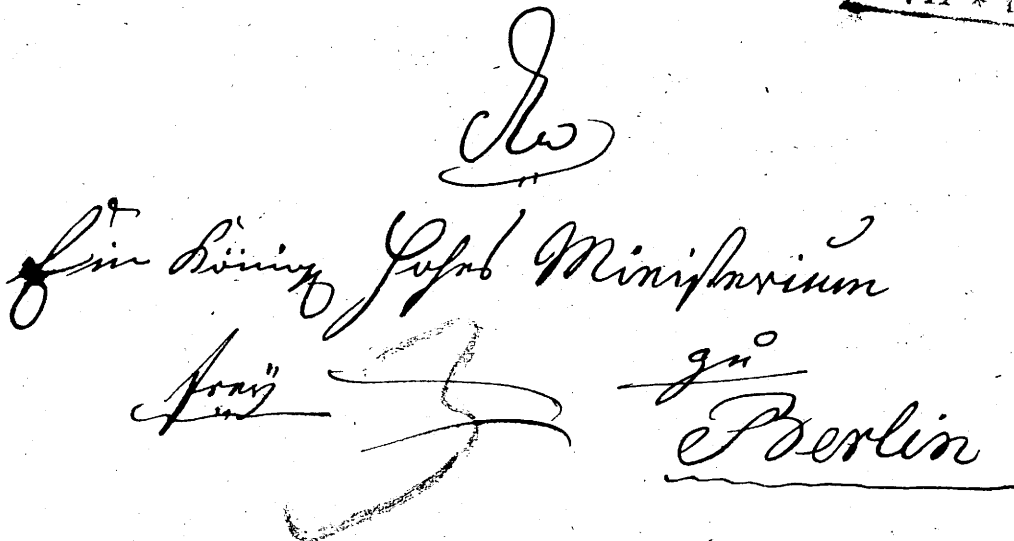 An
Ein Königl Hohes Ministerium
frey
zu
Berlin